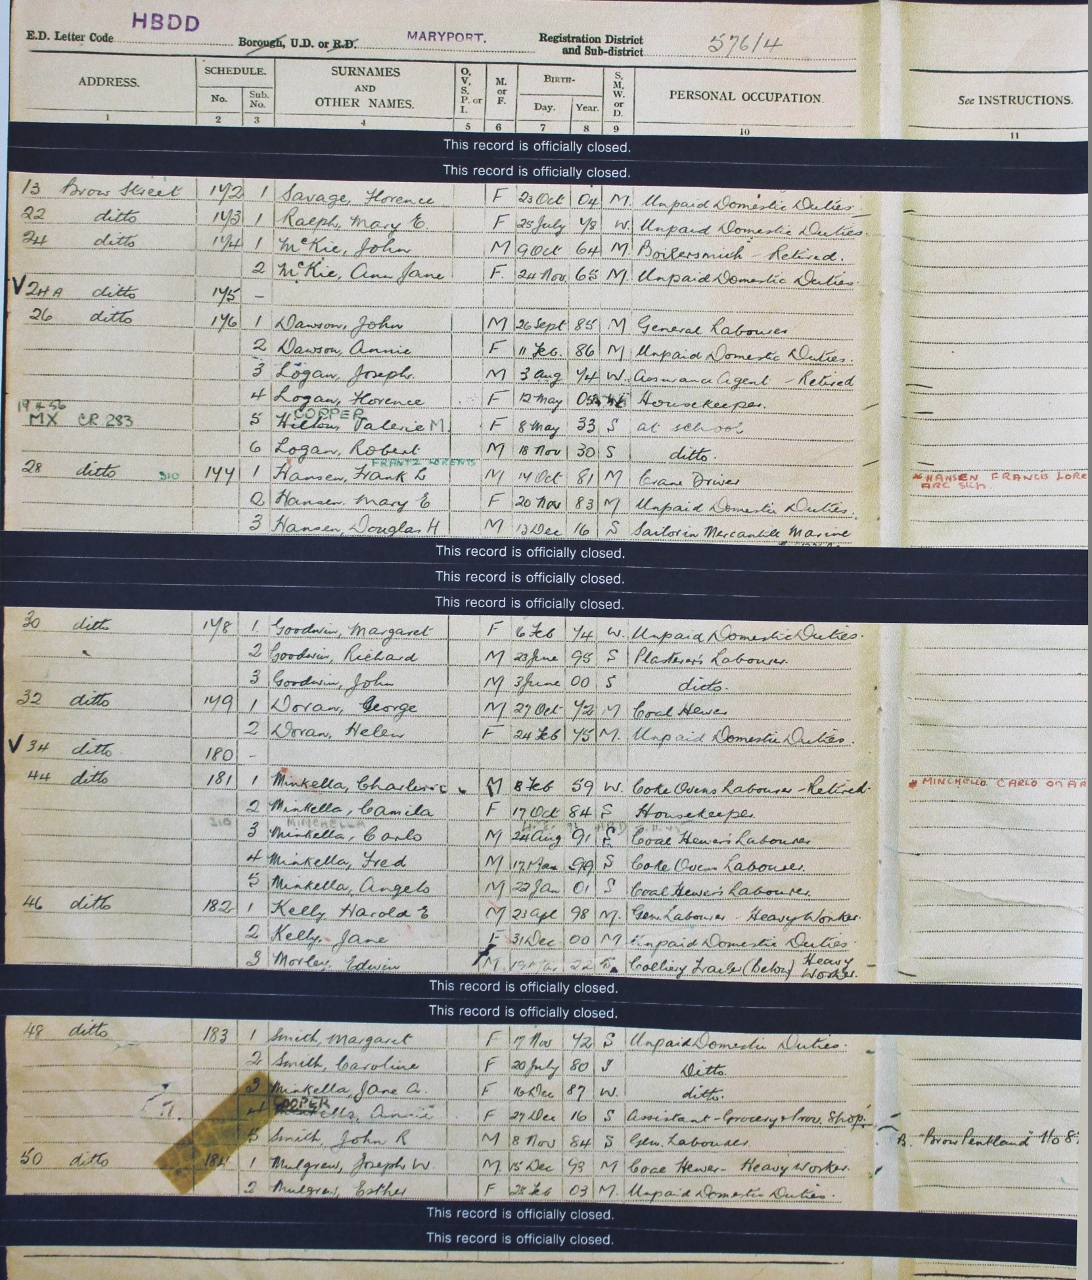 HBDD
E.D. Letter Code Borough, U.D. or R.D. MARYPORT. Registration District and Sub-district 576/4
ADDRESS. SCHEDULE. No. Sub. No. SURNAMES AND OTHER NAMES. O, V, S, P. or I. M. or F. BIRTH- Day. Year. S, M, W. or D. PERSONAL OCCUPATION. See INSTRUCTIONS.
1 2 3 4 5 6 7 8 9 10 11
This record is officially closed.
This record is officially closed.
13 Brow Street 172 1 Savage, Florence F 23 Oct 04 M. Unpaid Domestic Duties
22 ditto 173 1 Ralph, Mary E. F 25 July 78 W. Unpaid Domestic Duties.
24 ditto 174 1 McKie, John M 9 Oct 64 M. Boilersmith - Retired.
2 McKie, Ann Jane F 24 Nov 65 M. Unpaid Domestic Duties.
V 24A ditto 175 -
26 ditto 176 1 Dawson, John M 26 Sept 85 M General Labourer
2 Dawson, Annie F 11 Feb. 86 M Unpaid Domestic Duties.
3 Logan, Joseph. M 3 Aug 74 W. Assurance Agent - Retired
4 Logan, Florence F 12 May 05 Housekeeper.
19 4 56 COPPER
MX CR 283 5 Valerie M. F 8 May 33 S at school
6 Logan, Robert M 18 Nov 30 S ditto.
FRANTZ LORENTS
28 ditto 177 1 Hansen, Frank L M 14 Oct 81 M Crane Driver *HANSEN FRANCIS LORE
2 Hansen, Mary E F 20 Nov 83 M Unpaid Domestic Duties.
3 Hansen, Douglas H M 13 Dec 16 S Sailor in Mercantile Marine
This record is officially closed.
This record is officially closed.
This record is officially closed.
30 ditto 178 1 Goodwin, Margaret F 6 Feb 74 W. Unpaid Domestic Duties.
2 Goodwin, Richard M 23 June 95 S Plasterer's Labourer.
3 Goodwin, John M 3 June 00 S ditto.
32 ditto 179 1 Doran, George M 27 Oct 72 M Coal Hewer
2 Doran, Helen F 24 Feb 75 M. Unpaid Domestic Duties.
V 34 ditto 180 -
44 ditto 181 1 Minkella, M 8 Feb 59 W. Coke Ovens Labourer - Retired. * MINCHELLA CARLO ON AR
2 Minkella, Camila F 17 Oct 84 S Housekeeper
MINCHELLA
3 Minkella, Carlo M 24 Aug 91 S Coal Hewer's Labourer
4 Minkella, Fred M 17 Jan 99 S Coke Oven Labourer.
5 Minkella, Angelo M 22 Jan 01 S Coal Hewer's Labourer.
46 ditto 182 1 Kelly Harold E M 23 Apl 98 M. Gen. Labourer - Heavy Worker.
2 Kelly, Jane F 31 Dec 00 M Unpaid Domestic Duties.
3 Morley, Edwin M 22 Colliery (Below) Heavy Worker.
This record is officially closed.
This record is officially closed.
48 ditto 183 1 Smith, Margaret F 17 Nov 72 S Unpaid Domestic Duties.
2 Smith, Caroline F 20 July 80 S Ditto.
3 Minkella, Jane A. F 16 Dec 87 W. ditto.
COOPER
4 Minkella, Annie F 27 Dec 16 S Assistant - Grocery & Prov. Shop.
5 Smith, John R M 8 Nov 84 S Gen. Labourer
50 ditto 184 1 Mulgrew, Joseph W. M 15 Dec 93 M Coal Hewer - Heavy Worker.
2 Mulgrew, Esther F 28 Feb 03 M. Unpaid Domestic Duties.
This record is officially closed.
This record is officially closed.